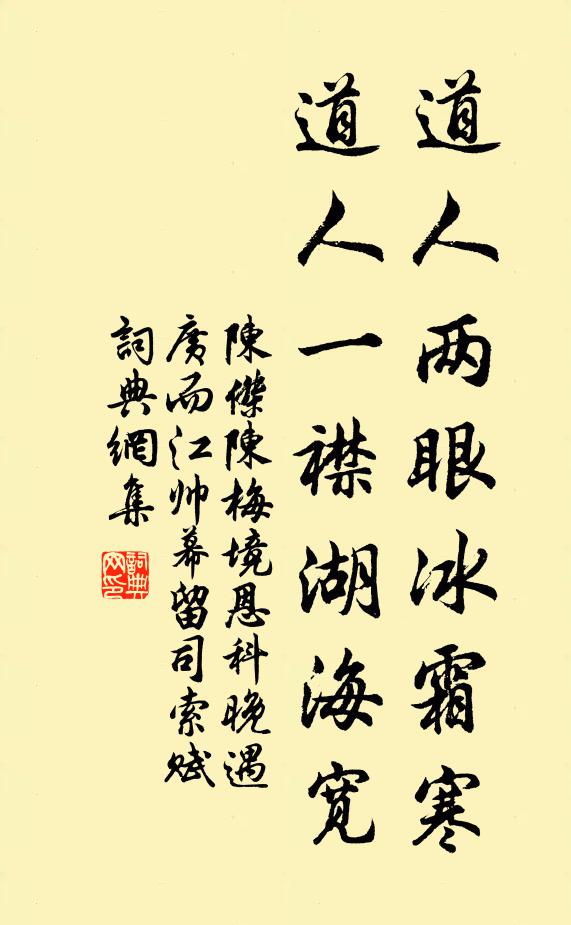 道人两眼冰霜寒
道人一襟湖海宽
陳傑陳梅境恩科晚遇
廣西江帅幕留司索赋
詞典網集
詞典网印